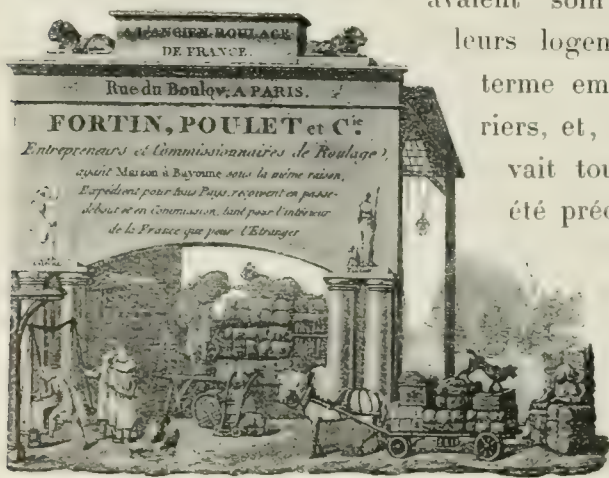 A L'ANCIEN ROULAGE
DE FRANCE.
Rue du Bouloy, A PARIS.
FORTIN, POULET et Cie.
Entrepreneurs et Commissionnaires de Roulage,
ayant Maison à Bayonne sous la même raison,
Expédient pour tous Pays, reçoivent en passe-
debout et en Commission, tant pour l'intérieur
de la France que pour l'Etranger
avaient soin
leurs logem
terme em
riers, et,
vait tou
été préc